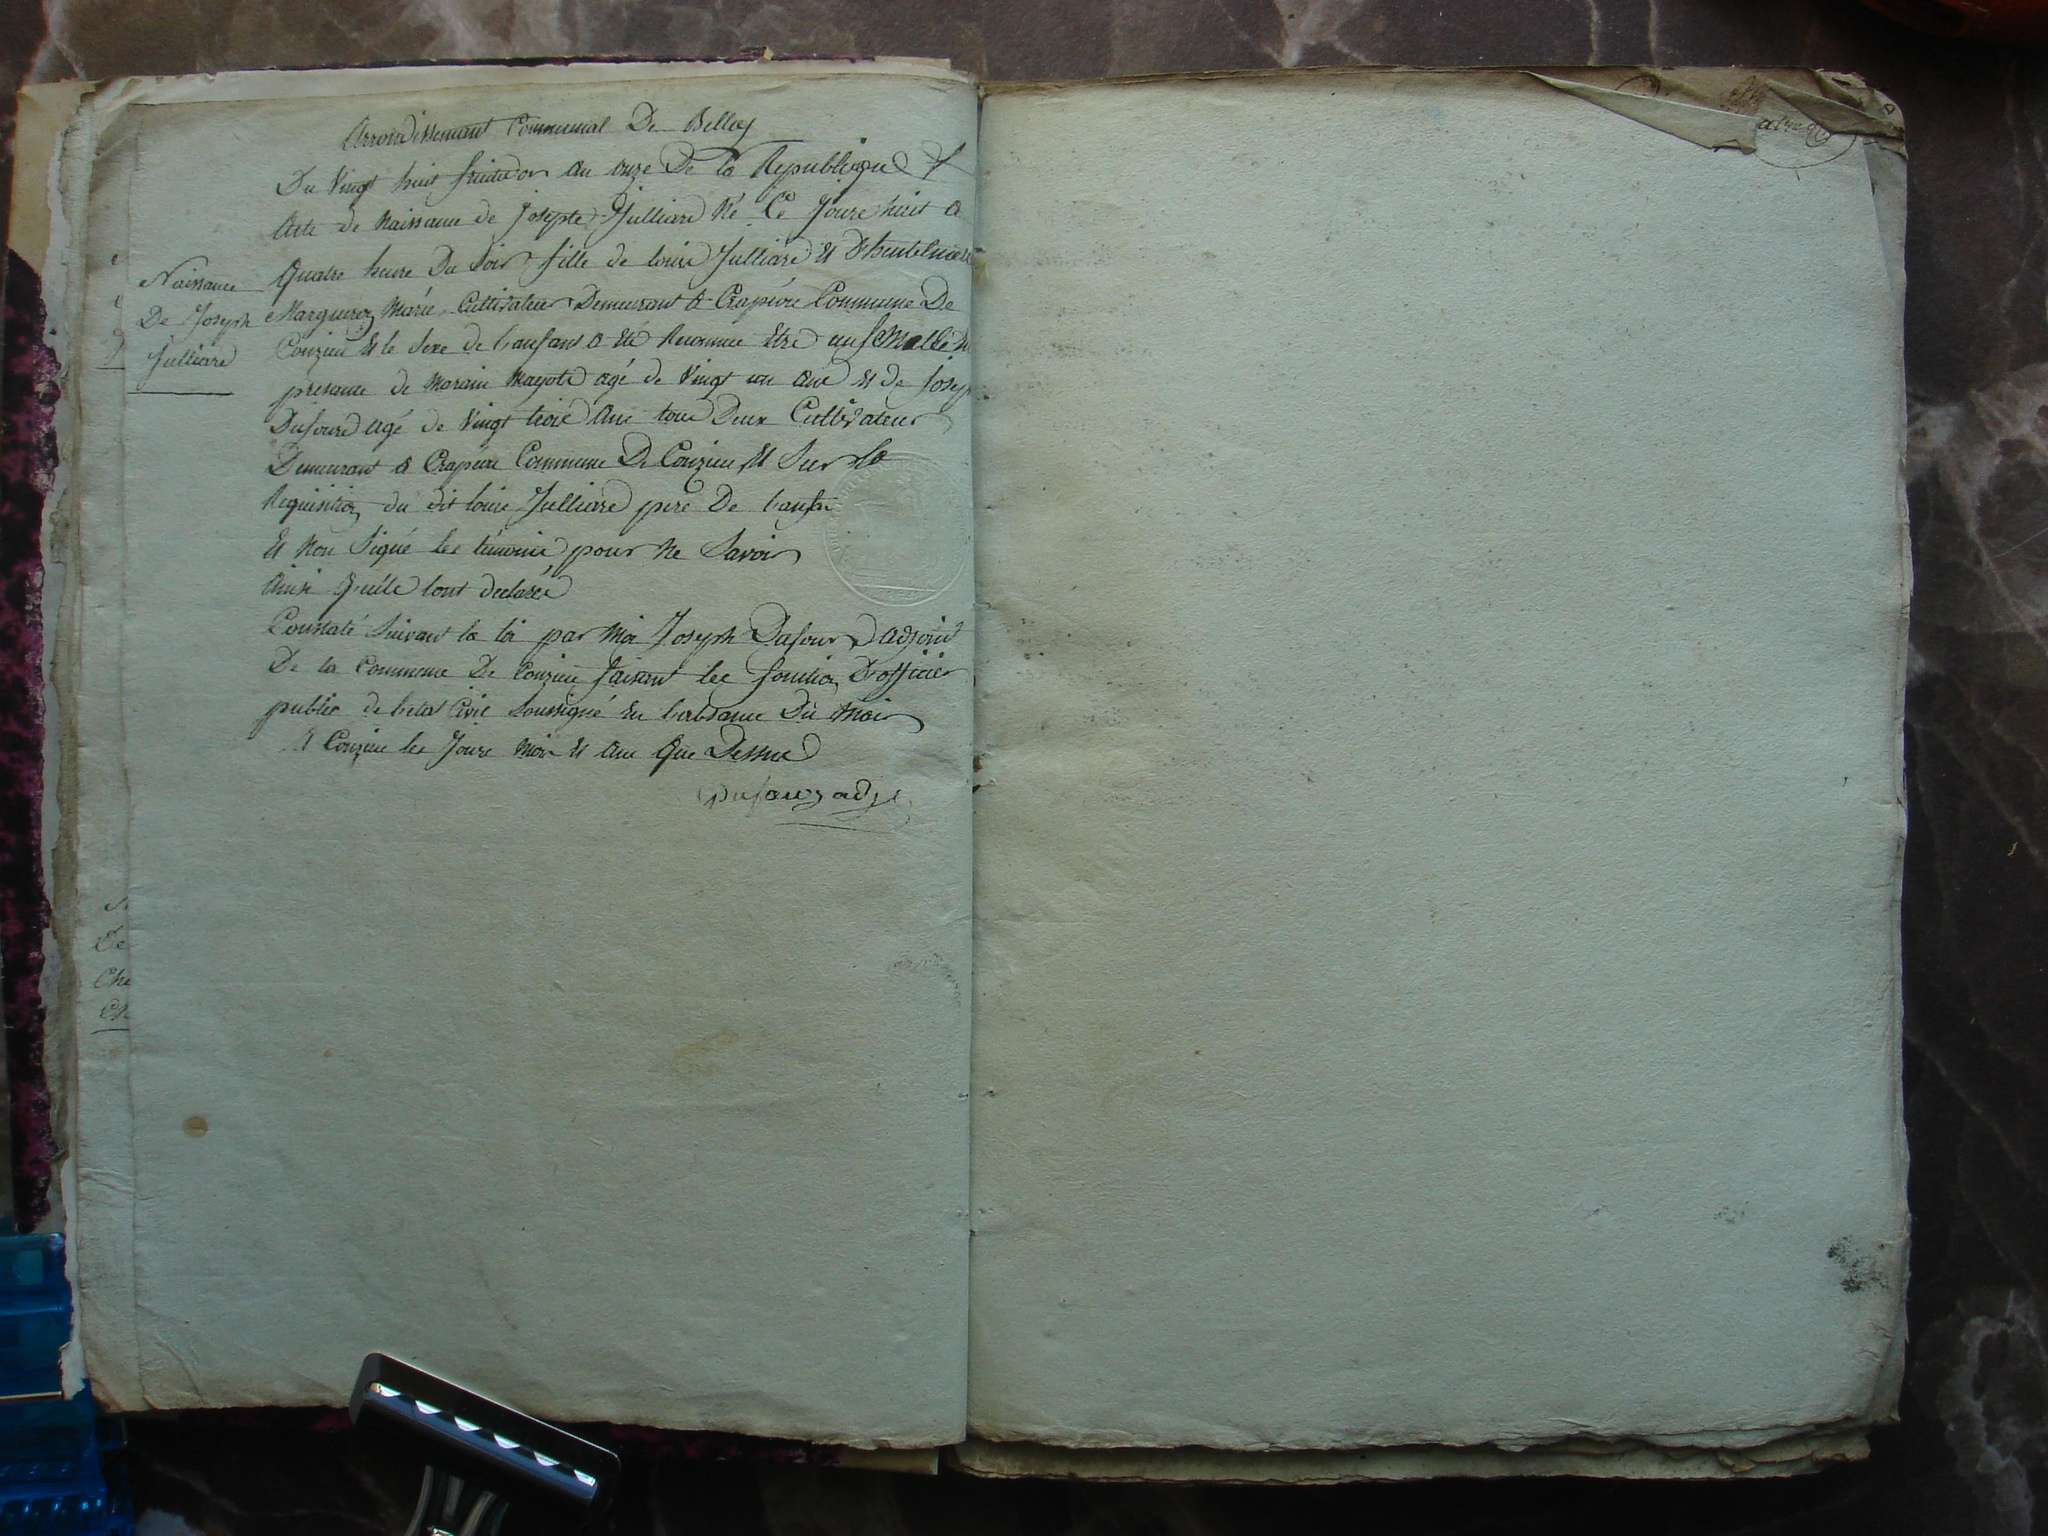 Arrondissement Communal De Belley
Du Vingt huit fructidor an onze De la Republique
Acte de Naissance de Josepte Julliard Né Ce Joure huit a
Quatre heure Du Soir fille de louis Julliard et
Marguerez Marie Cultivateur Demeurant a Crapéou Commune De
Conzieu et le Sexe de lanfant a été Reconnu Etre un Malle
presance de Marain Mayote agé de Vingt un ans et de Josep
Dufoure agé de Vingt trois ans tous Deux Cultivateur
Demeurant a Crapéou Commune De Conzieu et Sur la
Requisition du dit louis Julliard pere De lanfan
et Non Signé les témoins pour Ne Savoir
Ainsi quils lont declarée
Constaté Suivant la loi par Moi Joseph Dufour adjoint
De la Commune De Conzieu faisant les fonction Dofficier
public de letat Civil Soussigné en labsance Du Mair
A Conzieu les Jours Mois et ans Que Dessus
Dufour adj
Naissance
De Joseph
Julliard
De
Che